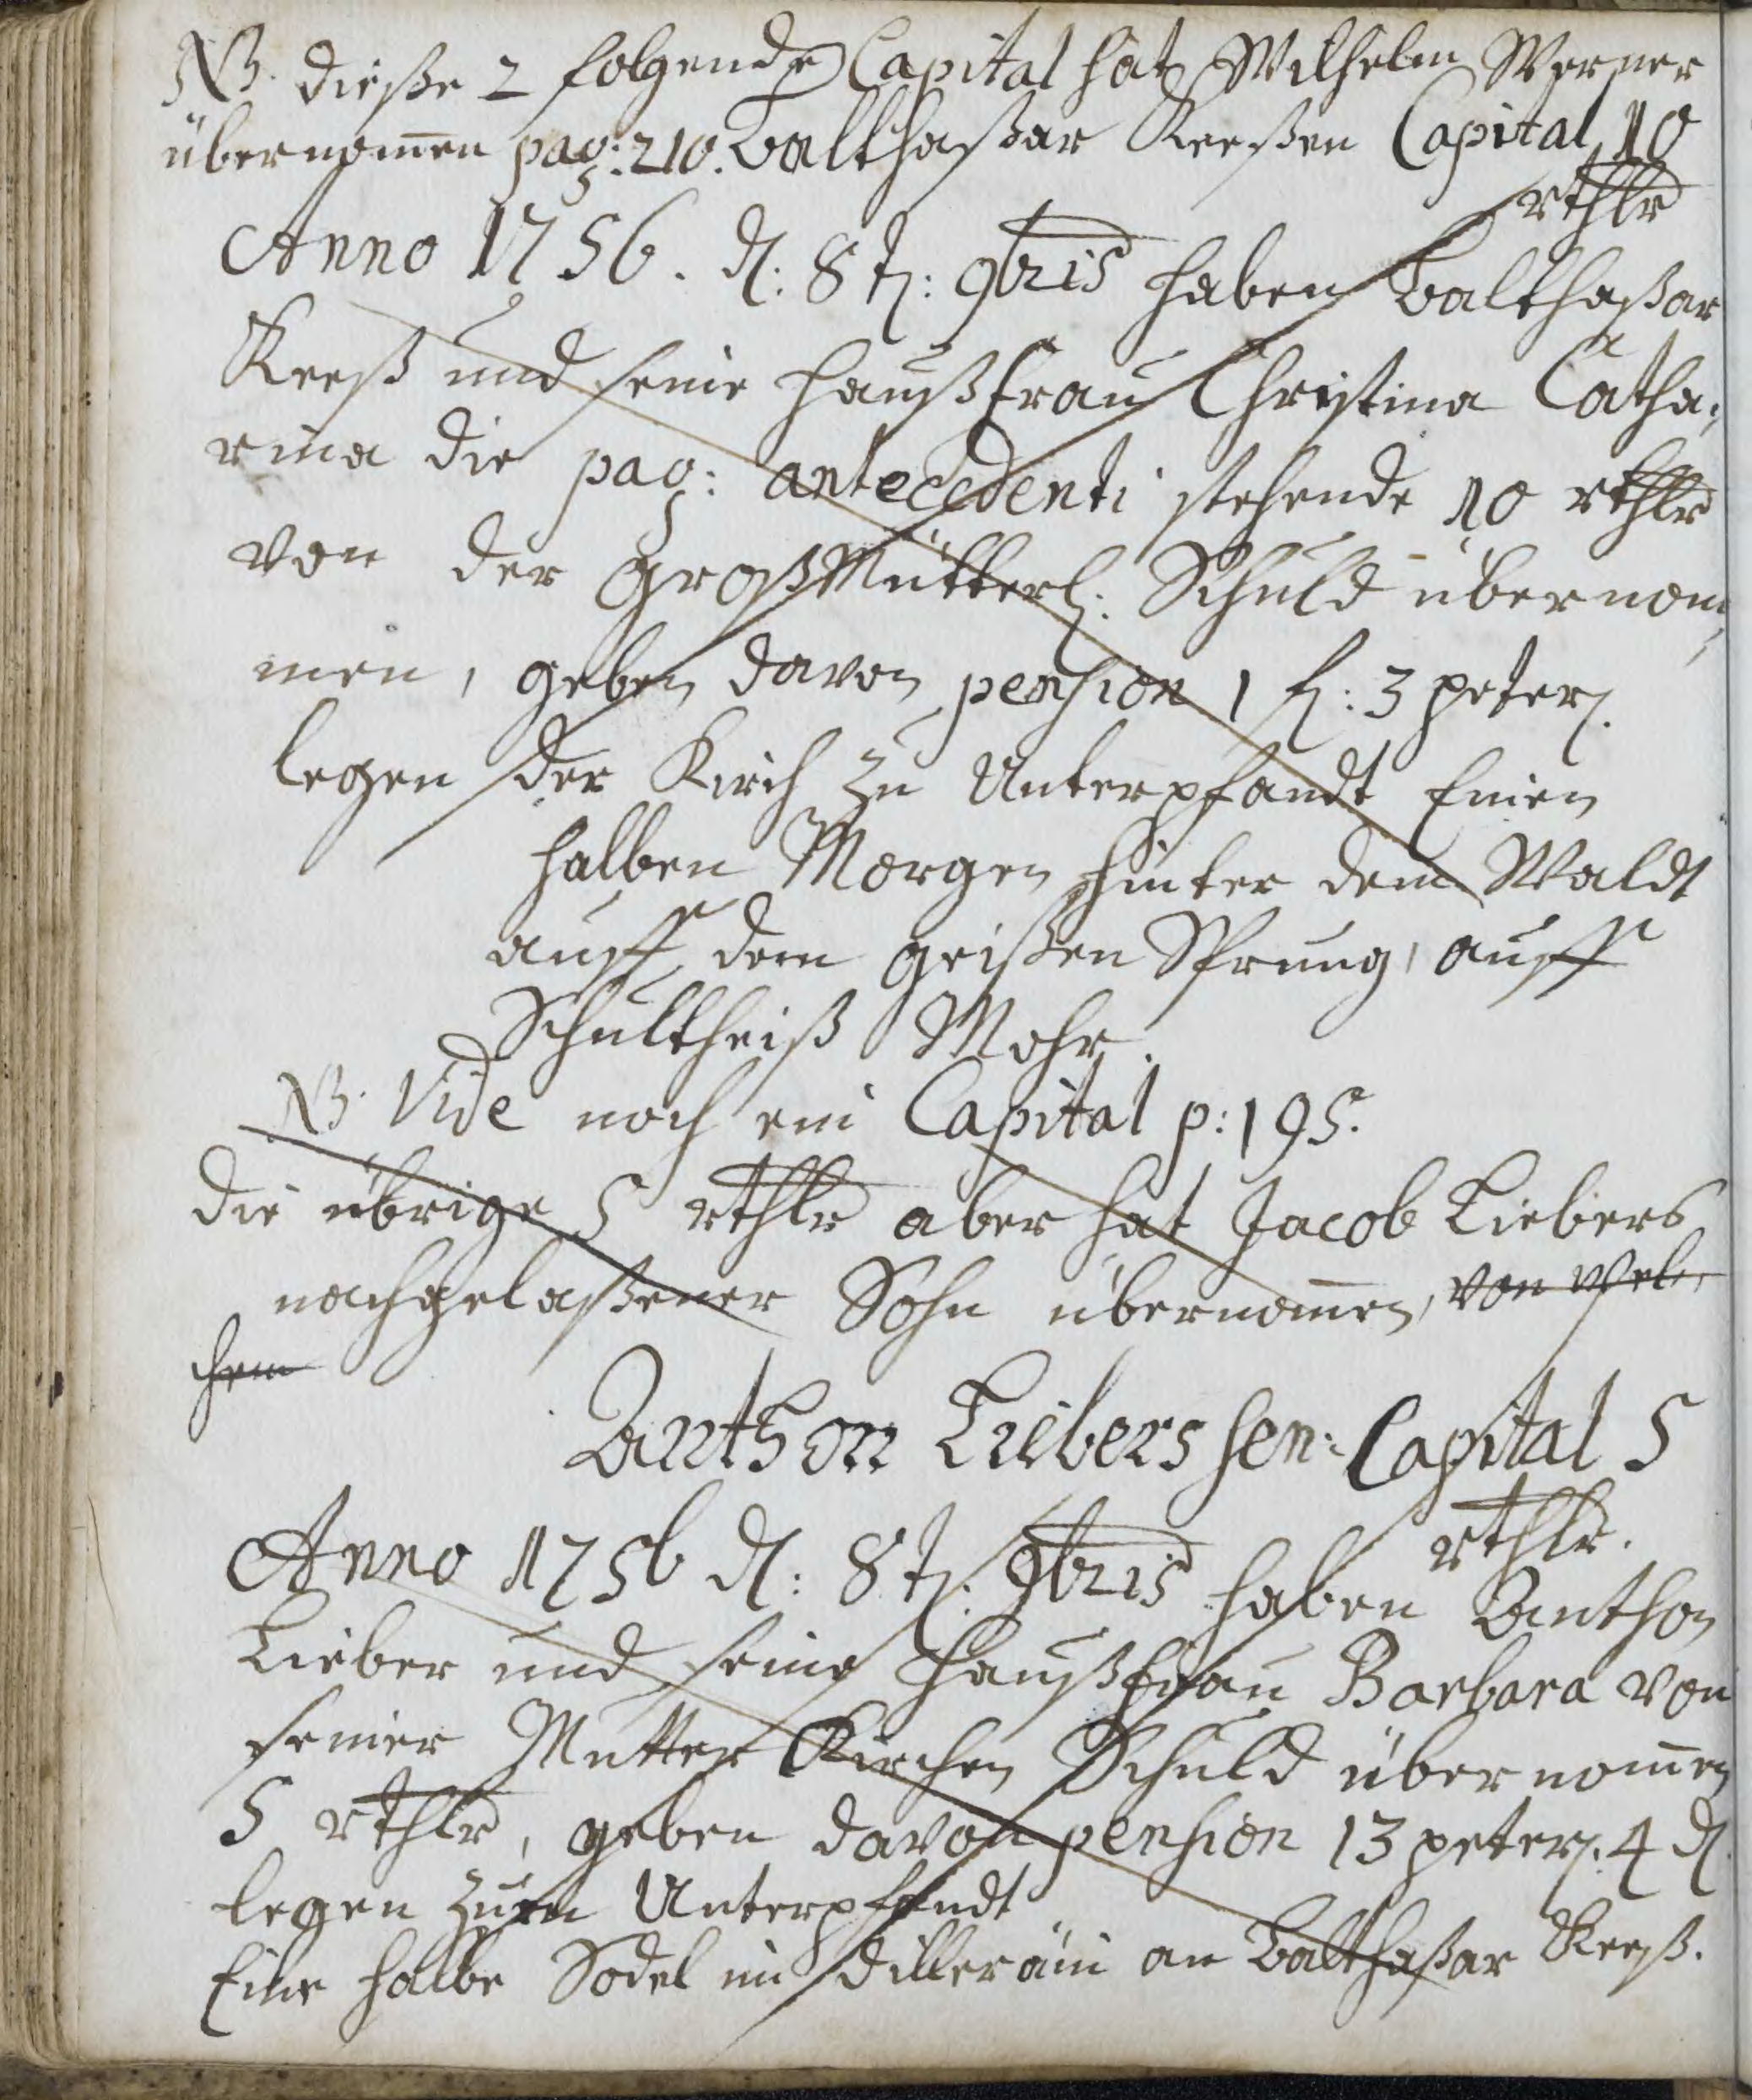 NB. dieße 2 folgende Capital hat Wilhelm Werner
übernom̄en pag: 210. Balthaßar Reeßen Capital 10
rthlr
Anno 1756. d: 8t: 9bris haben Balthaßar
Reeß und seine Haußfrau Christina Catha,
rina die pag: antecedenti stehende 10 rthlr
von der GroßMütterl: Schuld übernom,
men, geben davon pension 1 fl: 3 peter.
legen der Kirch zu Unterpfandt Einen
halben Morgen hinter dem Waldt
auff dem geißen Sprung, auff
Schultheiß Mohr.
NB. Vide noch ein Capital p: 195.
die übrige 5 rthlr aber hat Jacob Liebers
nachgelaßener Sohn übernom̄en, von wel,
chem
Anthon Liebers sen: Capital 5
rthlr.
Anno 1756 d: 8t: 9bris haben Anthon
Lieber und seine Haußfrau Barbara von
seiner Mutter Kirchen Schuld übernom̄en
5 rthlr, geben davon pension 13 peter. 4 d
legen zum Unterpfandt
Eine halbe Sodel im an Balthaßar Reeß.